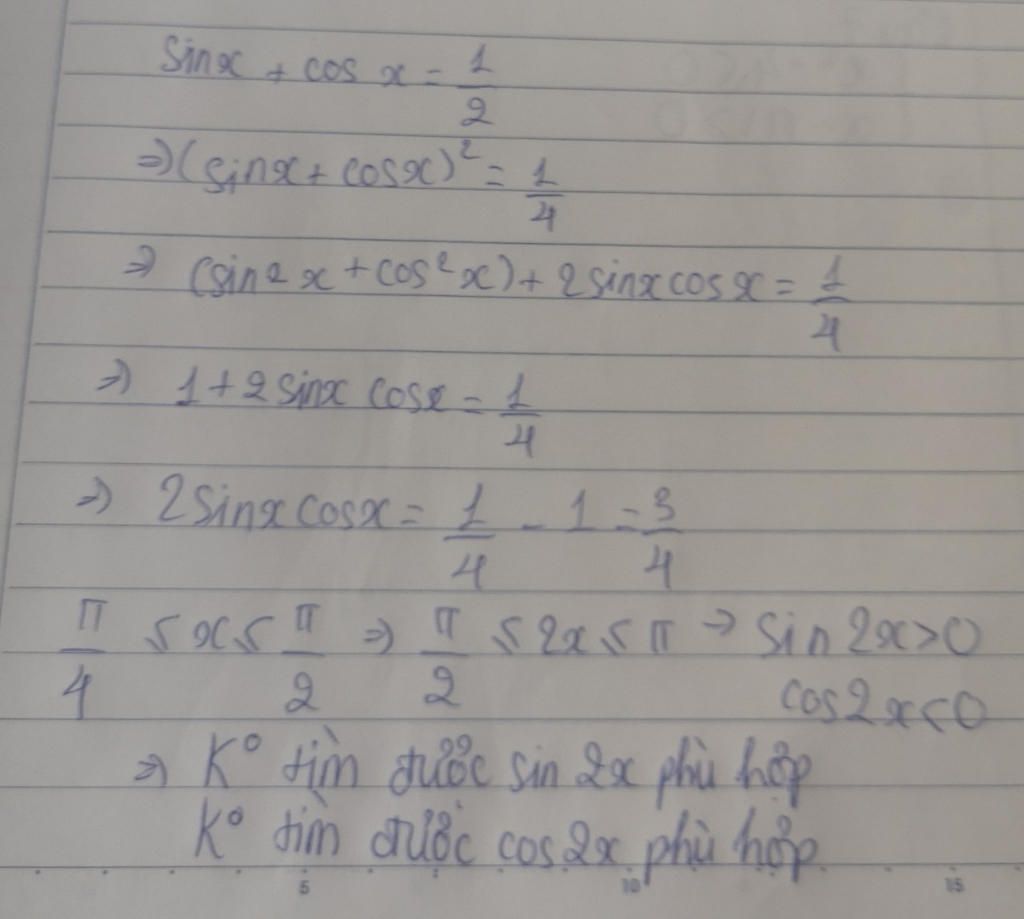 sinx + cos x = 1/2
⇒ (sinx + cosx)² = 1/4
⇒ (sin2 x + cos² x) + 2sinx cos x = 1/4
⇒ 1 + 2 sinx cosx = 1/4
⇒ 2 sinx cosx = 1/4 - 1 = 3/4
π/4 ≤ x ≤ π/2 ⇒ π/2 ≤ 2x ≤ π → sin 2x > 0
cos 2x < 0
⇒ K° tìm được sin 2x phù hợp
K° tìm được cos 2x phù hợp
5 10 15